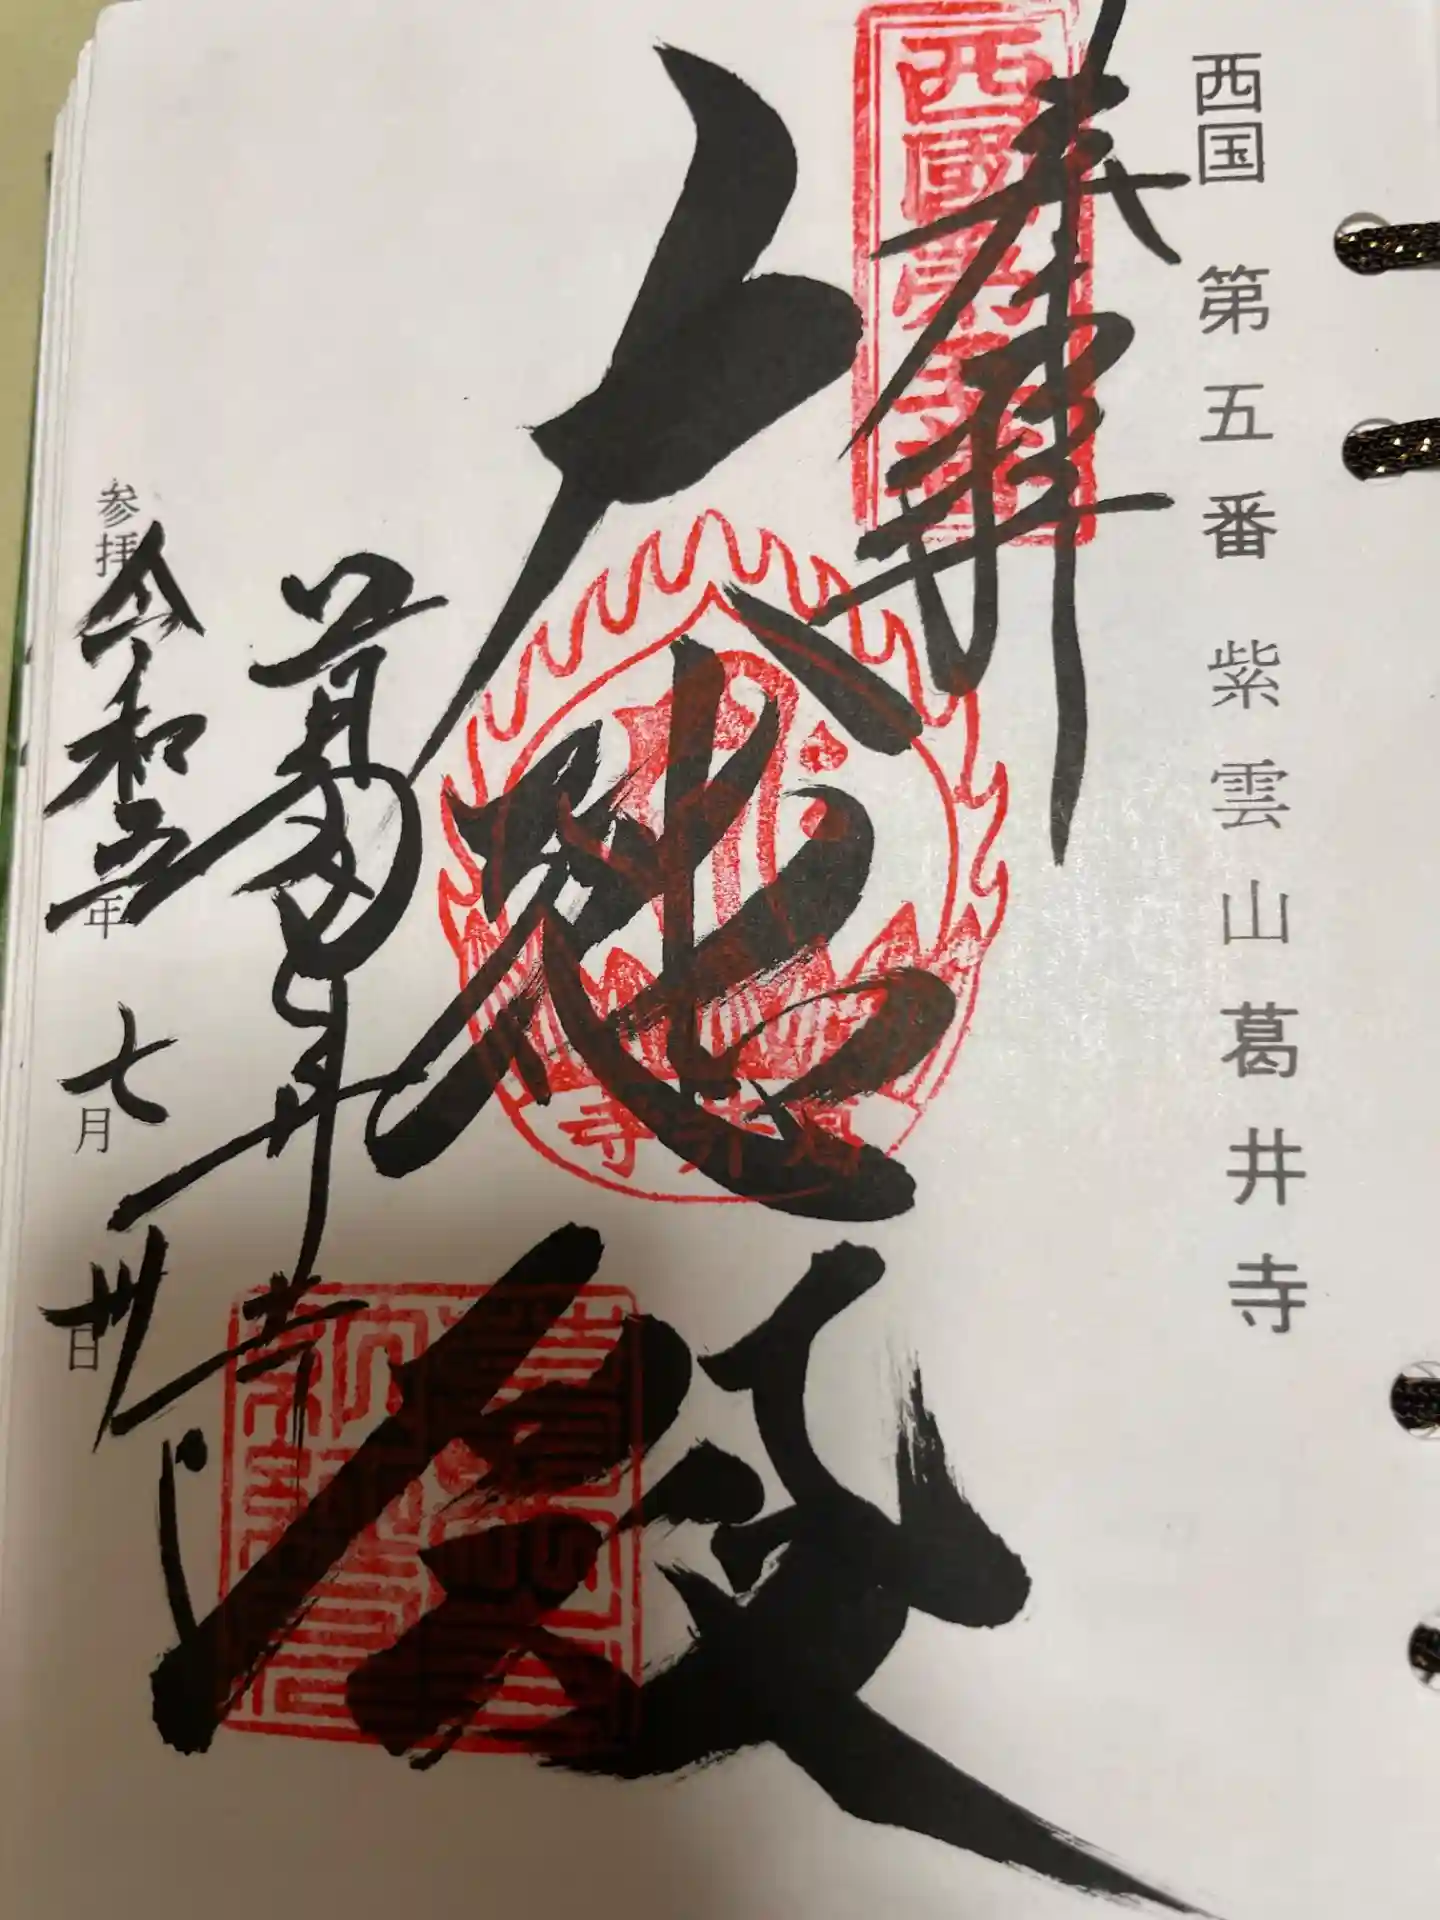 西国 第五番 紫雲山葛井寺
西國第五番
奉拝
大悲殿
葛井寺
葛井寺
参拝 令和五年 七月 卅日